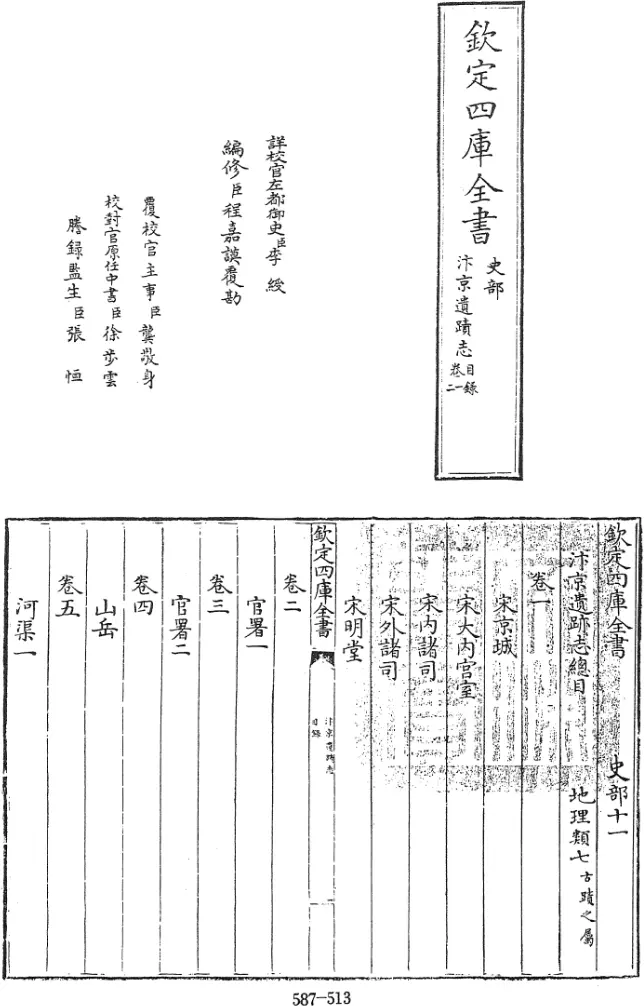 欽定四庫全書
史部
汴京遺蹟志
目錄
卷一
二
詳校官左都御史臣李綬
編修臣程嘉謨覆勘
覆校官主事臣龔敬身
校對官原任中書臣徐步雲
謄錄監生臣張恒
欽定四庫全書 史部十一
汴京遺跡志總目 地理類七古蹟之屬
卷一
宋京城
宋大內宮室
宋內諸司
宋外諸司
宋明堂
欽定四庫全書
汴京遺蹟志
目錄
卷二
官署一
卷三
官署二
卷四
山岳
卷五
河渠一
587-513